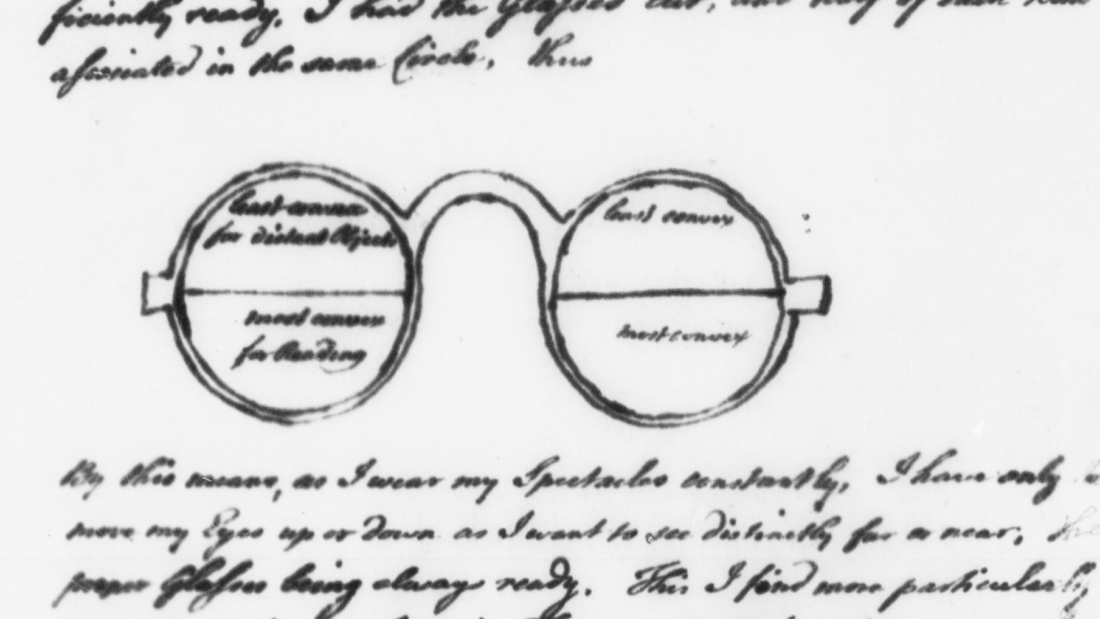 ficiently ready. I had the Glasses cut, and half of each kind
associated in the same Circle, thus
least convex
for distant Objects
most convex
for Reading
least convex
most convex
By this means, as I wear my Spectacles constantly, I have only
move my Eyes up or down as I want to see distinctly far or near, the
proper Glasses being always ready. This I find more particularly